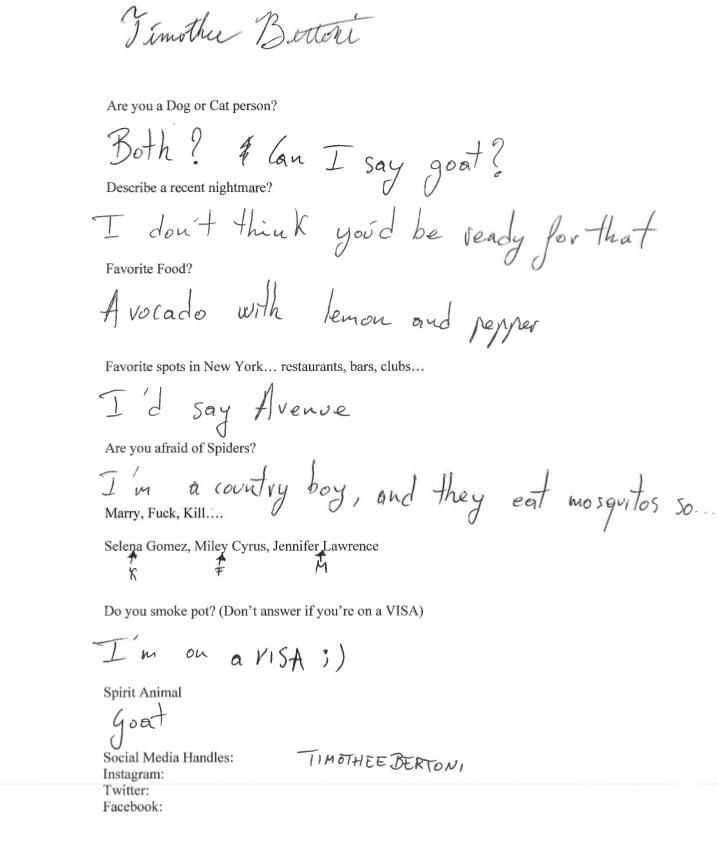 Timothee Bertoni
Are you a Dog or Cat person?
Both? & Can I say goat?
Describe a recent nightmare?
I don't think you'd be ready for that
Favorite Food?
Avocado with lemon and pepper
Favorite spots in New York… restaurants, bars, clubs…
I'd say Avenue
Are you afraid of Spiders?
I'm a country boy, and they eat mosquitos so...
Marry, Fuck, Kill….
Selena Gomez, Miley Cyrus, Jennifer Lawrence
K F M
Do you smoke pot? (Don't answer if you're on a VISA)
I'm on a VISA ;)
Spirit Animal
Goat
Social Media Handles: TIMOTHEEBERTONI
Instagram:
Twitter:
Facebook: